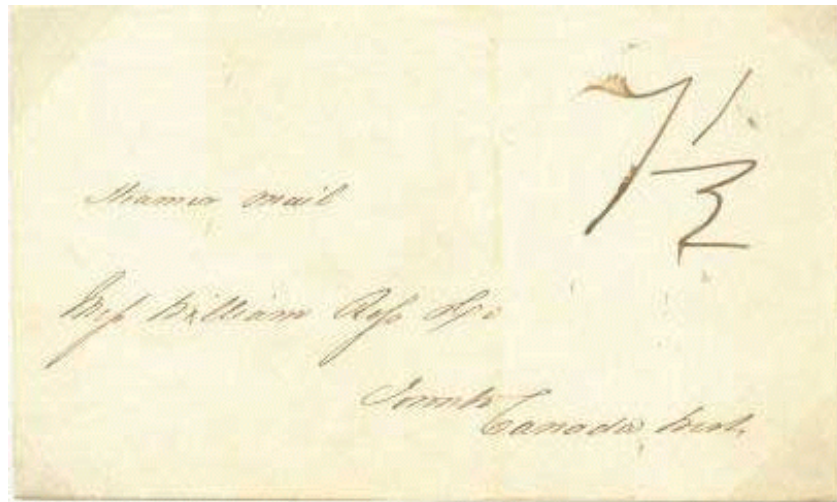 7 1/2
Steamer Mail
Mess William Ross & Co
Toronto
Canada West.